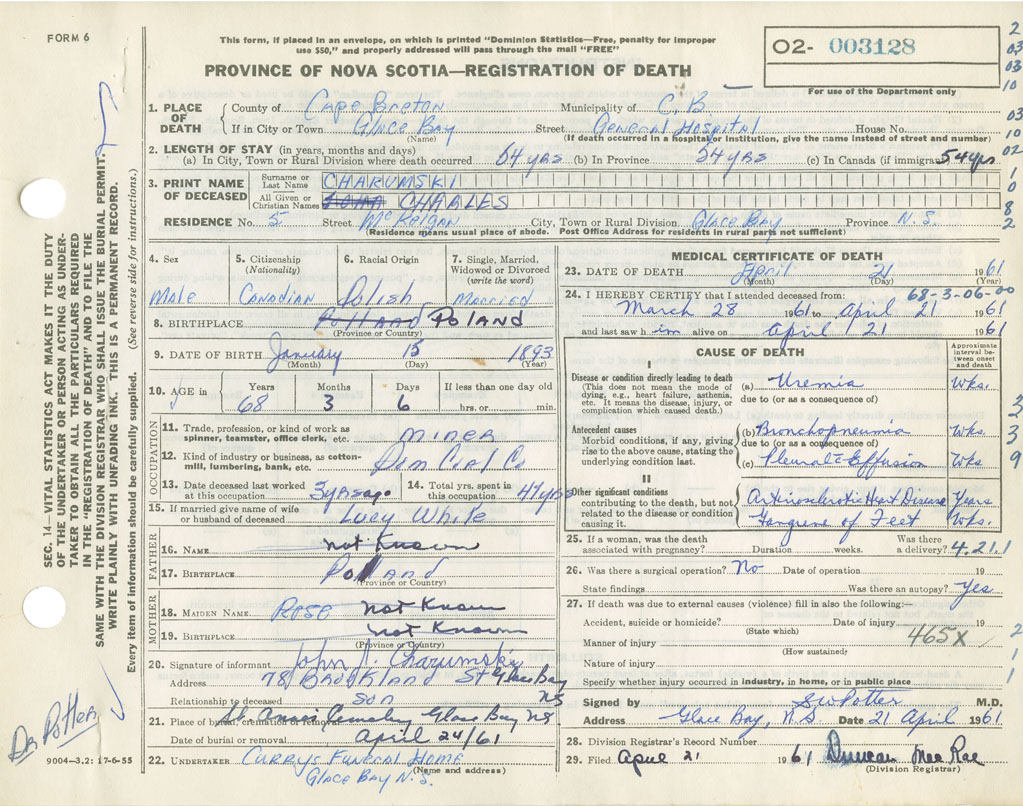 FORM 6
This form, if placed in an envelope, on which is printed "Dominion Statistics—Free, penalty for improper
use $50," and properly addressed will pass through the mail "FREE"
PROVINCE OF NOVA SCOTIA—REGISTRATION OF DEATH
O2- 003128
For use of the Department only
2
03
03
10
03
10
02
1
0
8
2
SEC. 14—VITAL STATISTICS ACT MAKES IT THE DUTY
OF THE UNDERTAKER OR PERSON ACTING AS UNDER-
TAKER TO OBTAIN ALL THE PARTICULARS REQUIRED
IN THE "REGISTRATION OF DEATH" AND TO FILE THE
SAME WITH THE DIVISION REGISTRAR WHO SHALL ISSUE THE BURIAL PERMIT.
WRITE PLAINLY WITH UNFADING INK. THIS IS A PERMANENT RECORD.
Every item of information should be carefully supplied. (See reverse side for instructions.)
Dr Potter
9004—3.2: 17-6-55
1. PLACE OF DEATH County of Cape Breton Municipality of C.B
If in City or Town Glace Bay Street General Hospital House No.
(Name) (If death occurred in a hospital or institution, give the name instead of street and number)
2. LENGTH OF STAY (in years, months and days)
(a) In City, Town or Rural Division where death occurred 54 yrs (b) In Province 54 yrs (c) In Canada (if immigrant) 54 yrs
3. PRINT NAME OF DECEASED Surname or Last Name CHARUMSKI
All Given or Christian Names CHARLES
RESIDENCE No. 5 Street McKeigan City, Town or Rural Division Glace Bay Province N.S.
(Residence means usual place of abode. Post Office Address for residents in rural parts not sufficient)
4. Sex Male
5. Citizenship (Nationality) Canadian
6. Racial Origin Polish
7. Single, Married, Widowed or Divorced (write the word) Married
8. BIRTHPLACE Polland POLAND
(Province or Country)
9. DATE OF BIRTH January 15 1893
(Month) (Day) (Year)
10. AGE in Years 68 Months 3 Days 6 If less than one day old hrs. or min.
OCCUPATION
11. Trade, profession, or kind of work as
spinner, teamster, office clerk, etc. Miner
12. Kind of industry or business, as cotton-
mill, lumbering, bank, etc. Dom Coal Co
13. Date deceased last worked at this occupation 3 yrs ago 14. Total yrs. spent in this occupation 41 yrs
15. If married give name of wife
or husband of deceased Lucy White
FATHER
16. NAME not Known
17. BIRTHPLACE Polland
(Province or Country)
MOTHER
18. MAIDEN NAME Rose not Known
19. BIRTHPLACE not Known
(Province or Country)
20. Signature of informant John J. Charumski
Address 78 Brookland St Glace Bay NS
Relationship to deceased son
21. Place of burial, cremation or removal St. Anns Cemetery Glace Bay NS.
Date of burial or removal April 24/61
22. UNDERTAKER Currys Funeral Home
(Name and address)
Glace Bay N.S.
MEDICAL CERTIFICATE OF DEATH
23. DATE OF DEATH April 21 1961
(Month) (Day) (Year)
24. I HEREBY CERTIFY that I attended deceased from: 68-3-06-00
March 28 1961 to April 21 1961
and last saw him alive on April 21 1961
CAUSE OF DEATH
Approximate interval between onset and death
I
Disease or condition directly leading to death
(This does not mean the mode of
dying, e.g., heart failure, asthenia,
etc. It means the disease, injury, or
complication which caused death.)
(a) Uremia Wks.
due to (or as a consequence of)
Antecedent causes
Morbid conditions, if any, giving
rise to the above cause, stating the
underlying condition last.
(b) Bronchopneumia Wks
due to (or as a consequence of)
(c) Pleural Effusion Wks
II
Other significant conditions
contributing to the death, but not
related to the disease or condition
causing it.
Artiriosclerotic Heart Disease Years
Gangrene of Feet Wks.
3
9
25. If a woman, was the death
associated with pregnancy? Duration weeks. Was there a delivery? 4.21.1
26. Was there a surgical operation? No Date of operation 19
State findings Was there an autopsy? Yes
27. If death was due to external causes (violence) fill in also the following:—
Accident, suicide or homicide? Date of injury 19
(State which) 465X
Manner of injury
(How sustained)
Nature of injury
Specify whether injury occurred in industry, in home, or in public place
2
1
1
Signed by SW Potter M.D.
Address Glace Bay, N.S Date 21 April 1961
28. Division Registrar's Record Number
29. Filed April 21 1961 Duncan Mac Rae
(Division Registrar)